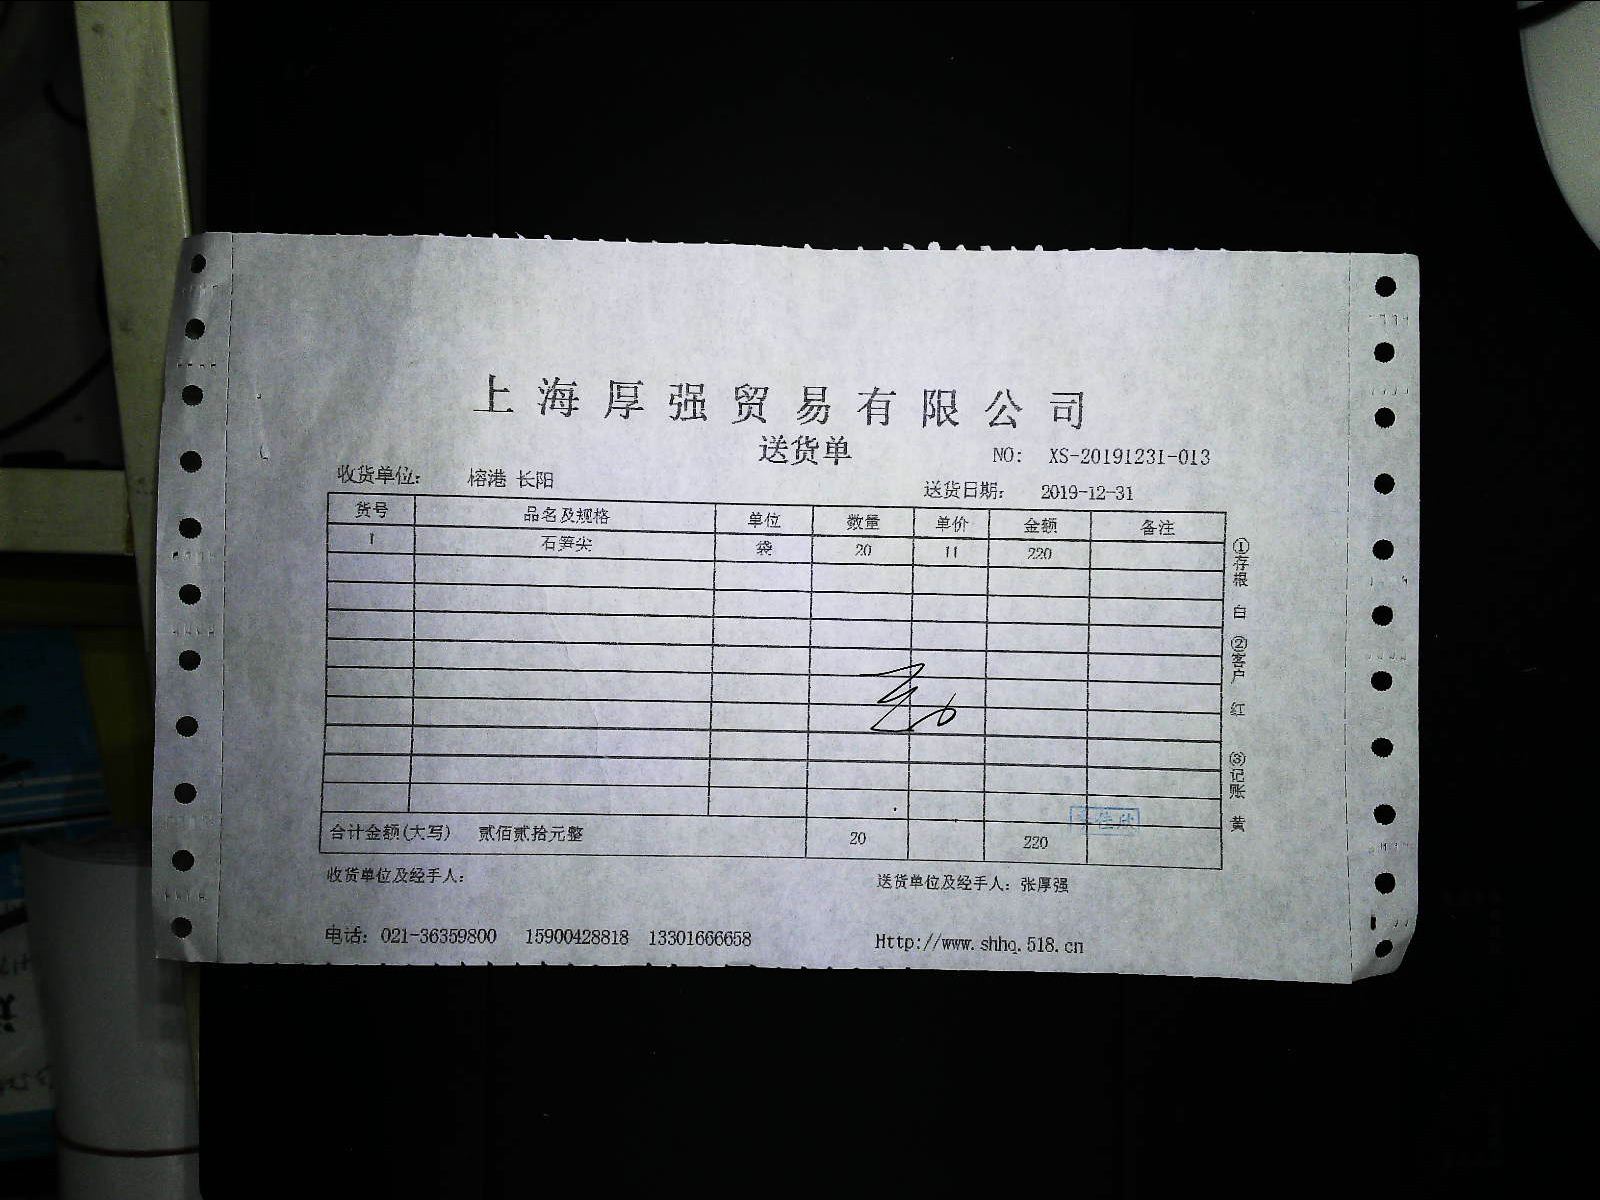 上海厚强贸易有限公司
送货单
NO: XS-20191231-013
收货单位: 榕港 长阳
送货日期: 2019-12-31
货号 品名及规格 单位 数量 单价 金额 备注
1 石笋尖 袋 20 11 220
合计金额(大写) 贰佰贰拾元整 20 220
收货单位及经手人:
送货单位及经手人: 张厚强
电话: 021-36359800 15900428818 13301666658
Http://www.shhq.518.cn
①存根 白 ②客户 红 ③记账 黄
佳欣